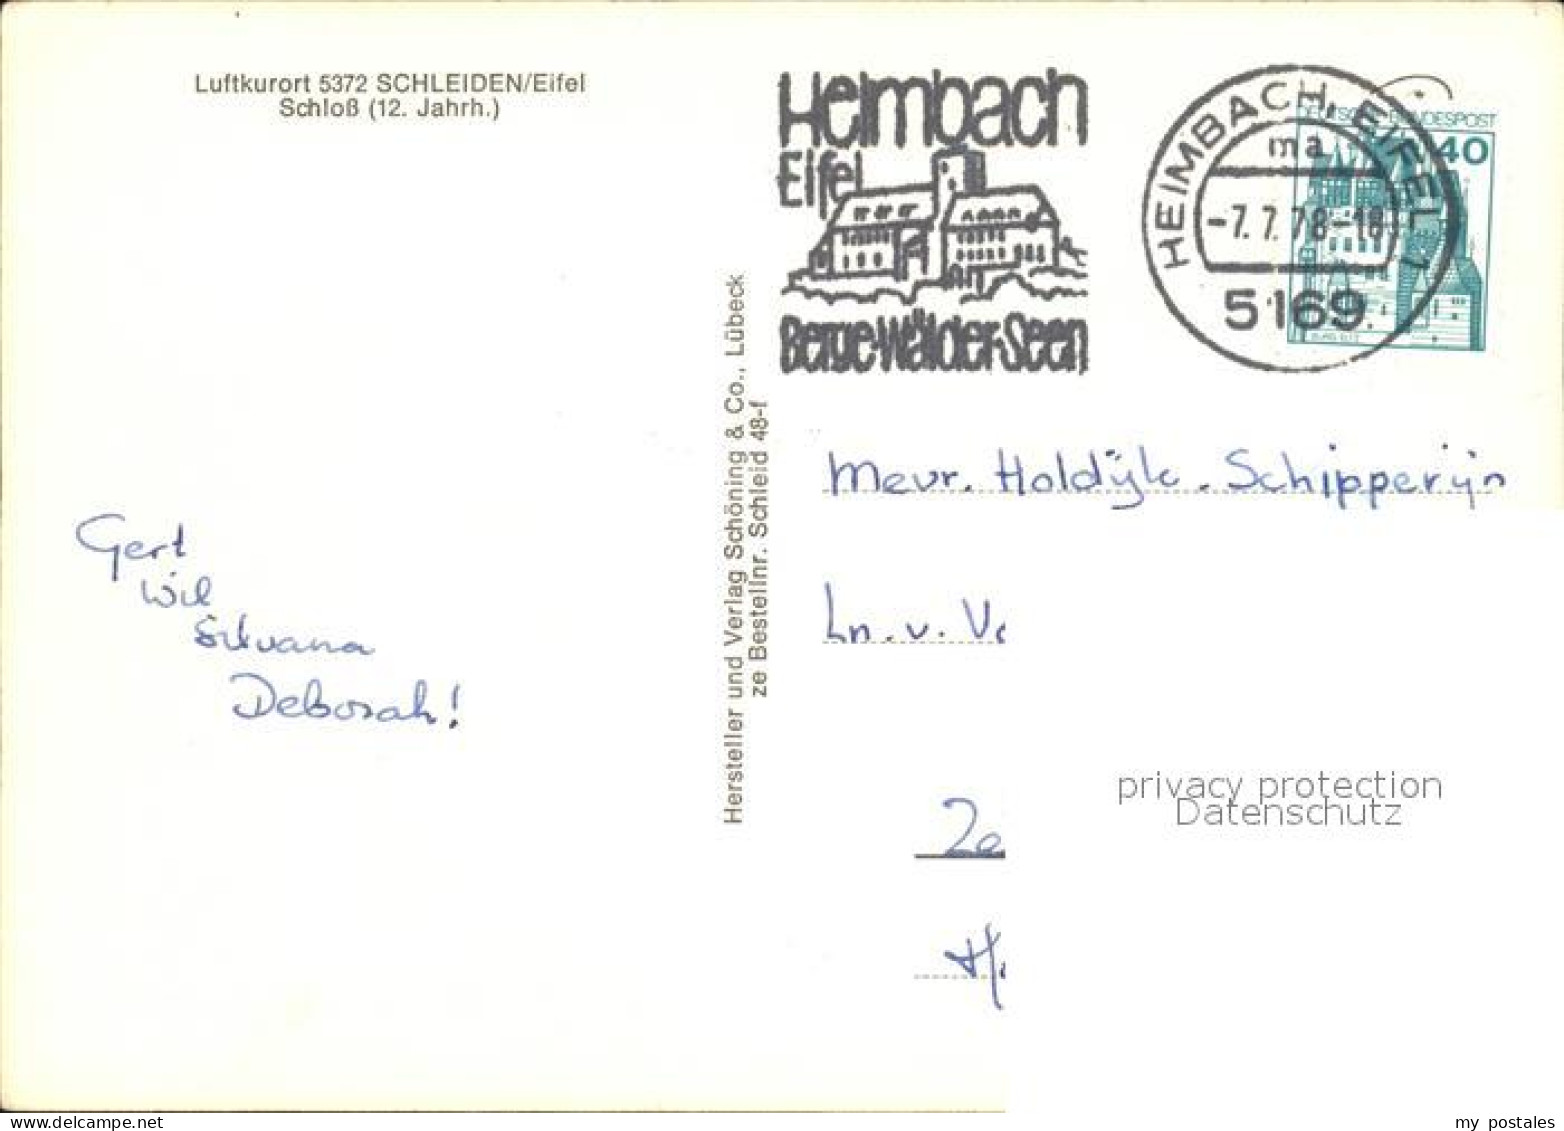 Luftkurort 5372 SCHLEIDEN/Eifel
Schloß (12. Jahrh.)
Heimbach
Eifel
Berge-Wälder-Seen
HEIMBACH, EIFEL 1
ma
-7.7.78-18
5169
DEUTSCHE BUNDESPOST
40
BURG ELTZ
Hersteller und Verlag Schöning & Co., Lübeck
ze Bestellnr. Schleid 48-f
Mevr. Holdijk. Schipperijn
Ln. v. V
Ze
H
Gert
Wil
Silvana
Deborah!
privacy protection
Datenschutz
my postales